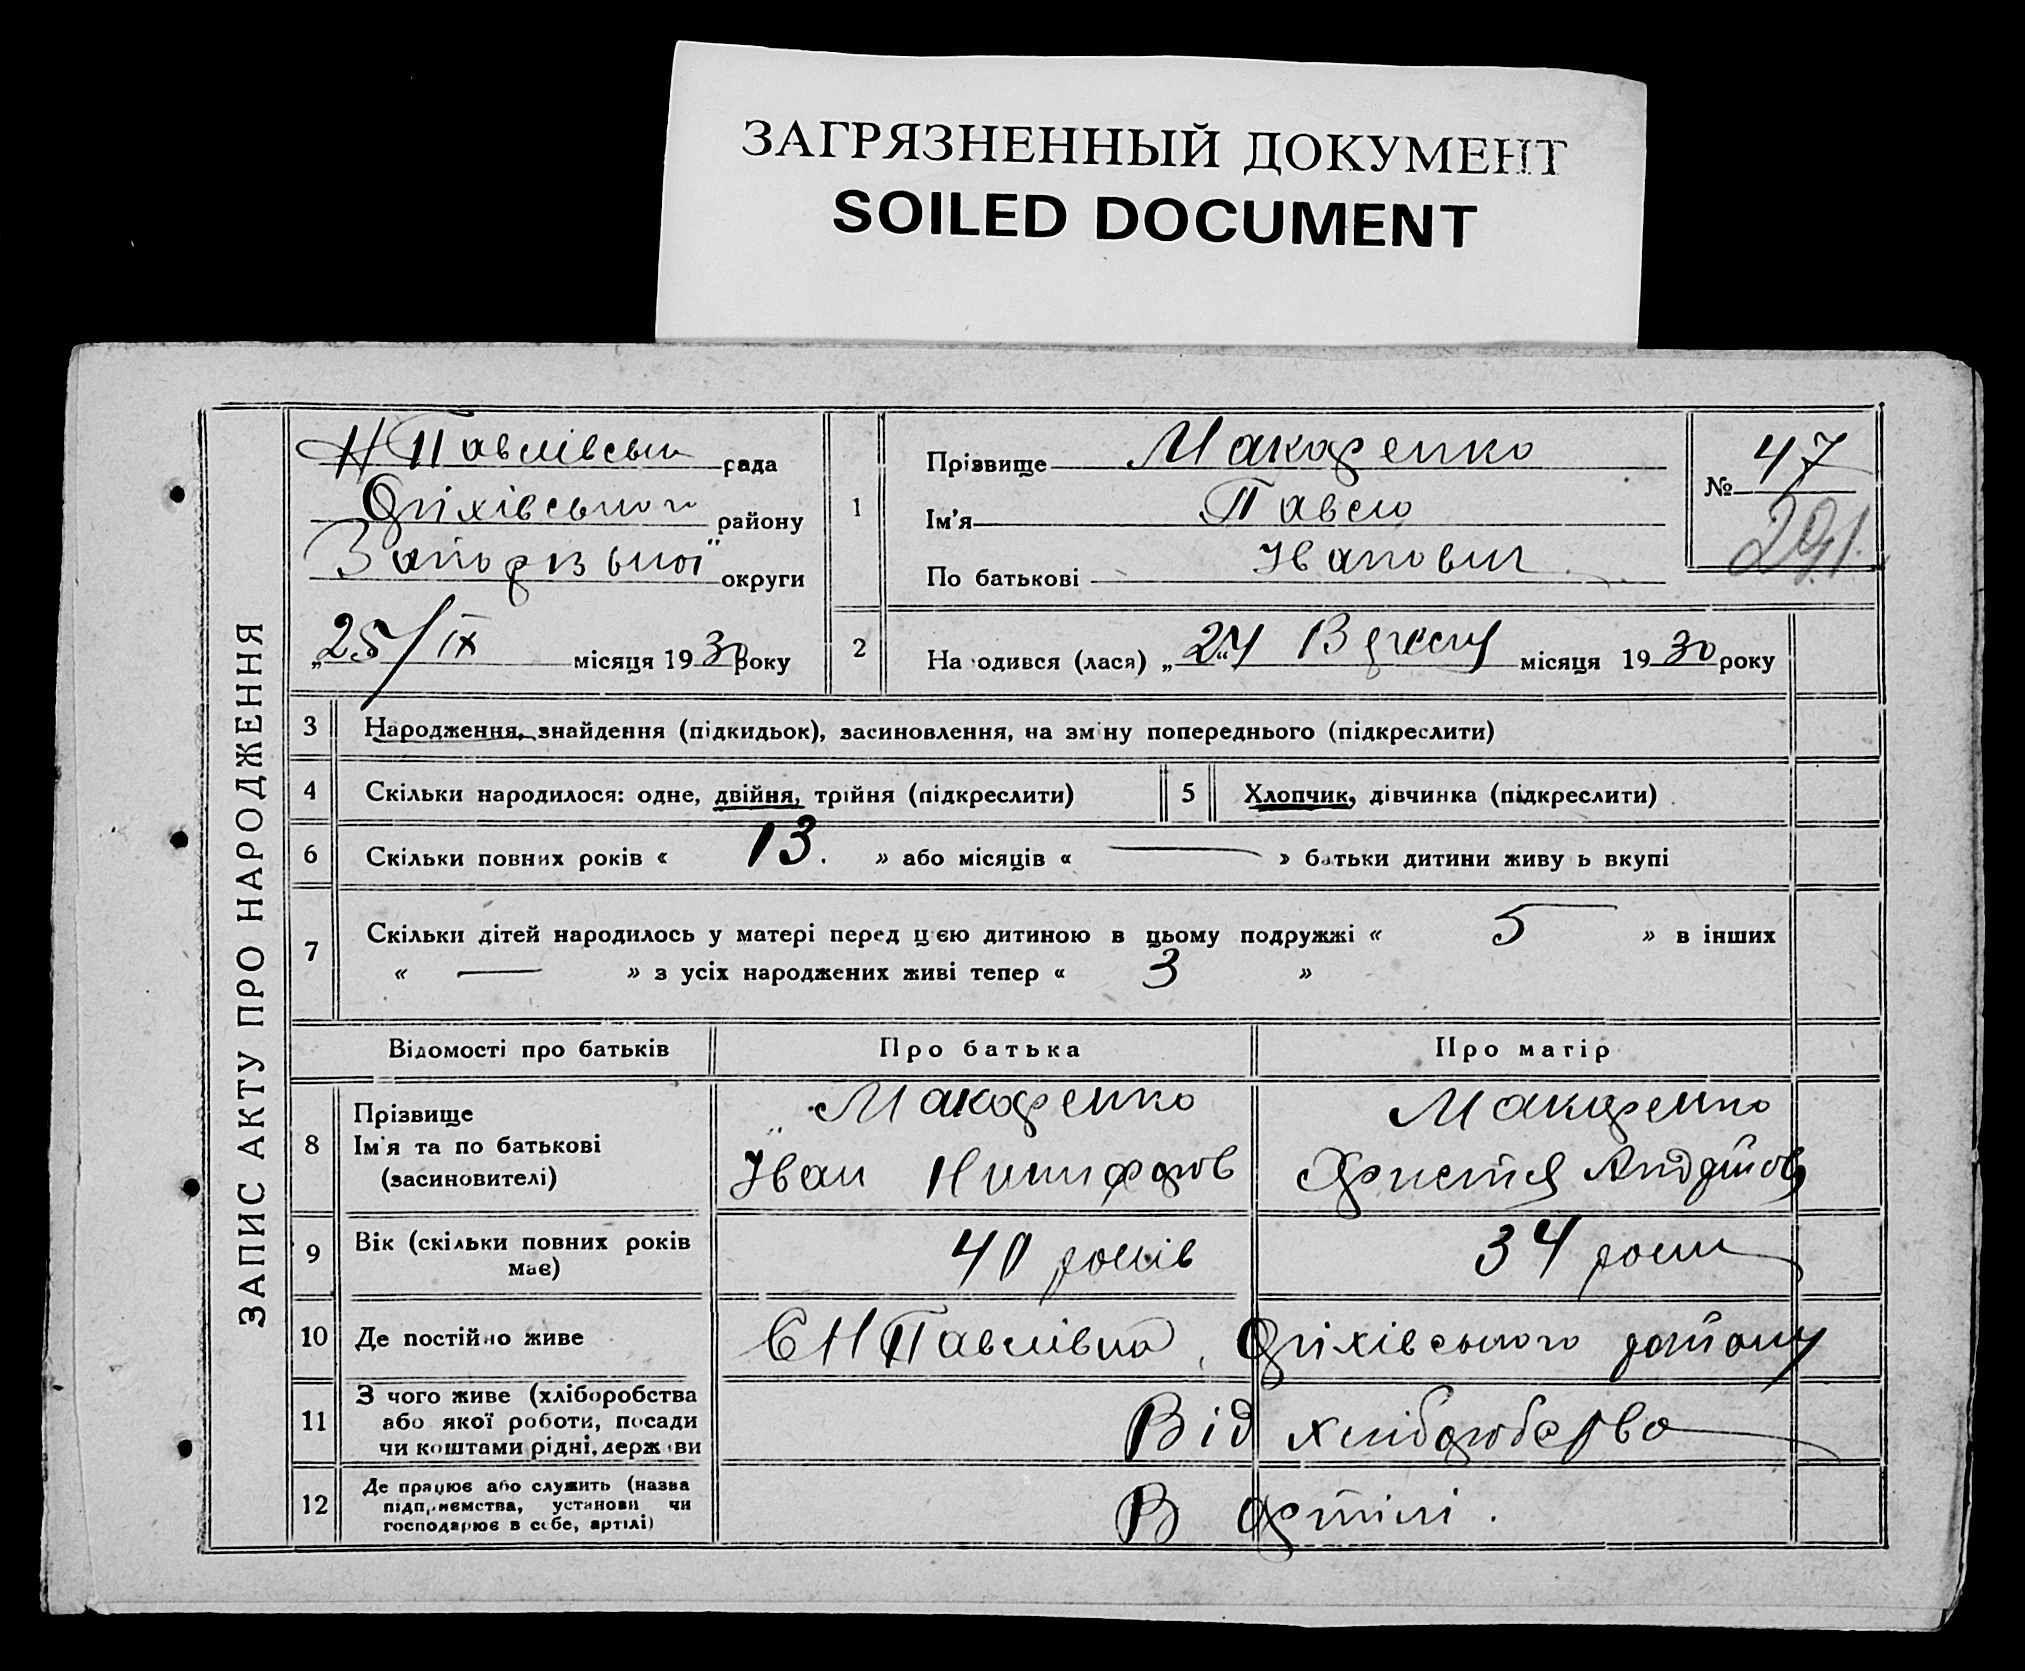 ЗАГРЯЗНЕННЫЙ ДОКУМЕНТ
SOILED DOCUMENT
ЗАПИС АКТУ ПРО НАРОДЖЕННЯ
Н Павлівська рада
Оріхівського району
Запорізької округи
„25/IX місяця 1930 року
1
Прізвище Макаренко
Ім'я Павло
По батькові Іванович
№ 47
291.
2 Народився (лася) „24“ Вересня місяця 1930 року
3 Народження, знайдення (підкидьок), засиновлення, на зміну попереднього (підкреслити)
4 Скільки народилося: одне, двійня, трійня (підкреслити) 5 Хлопчик, дівчинка (підкреслити)
6 Скільки повних років « 13. » або місяців « — » батьки дитини живуть вкупі
7 Скільки дітей народилось у матері перед цією дитиною в цьому подружжі « 5 » в інших
« — » з усіх народжених живі тепер « 3 »
Відомості про батьків Про батька Про матір
8 Прізвище
Ім'я та по батькові
(засиновителі)
Макаренко
Іван Никифоров
Макаренко
Христя Андріївна
9 Вік (скільки повних років
має)
40 років
34 роки
10 Де постійно живе
С Н Павлівка, Оріхівського району
11 З чого живе (хліборобства
або якої роботи, посади
чи коштами рідні, держави
Від хліборобства
12 Де працює або служить (назва
підприємства, установи чи
господарює в себе, артілі)
В артілі.